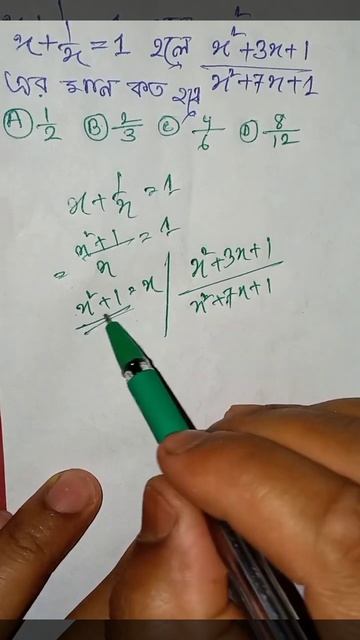 x + 1/x = 1 হলে x² + 3x + 1 / x² + 7x + 1
এর মান কত হবে
A 1/2 B 2/3 C 4/6 D 8/12
x + 1/x = 1
= x² + 1 / x = 1
x² + 1 = x | x² + 3x + 1 / x² + 7x + 1